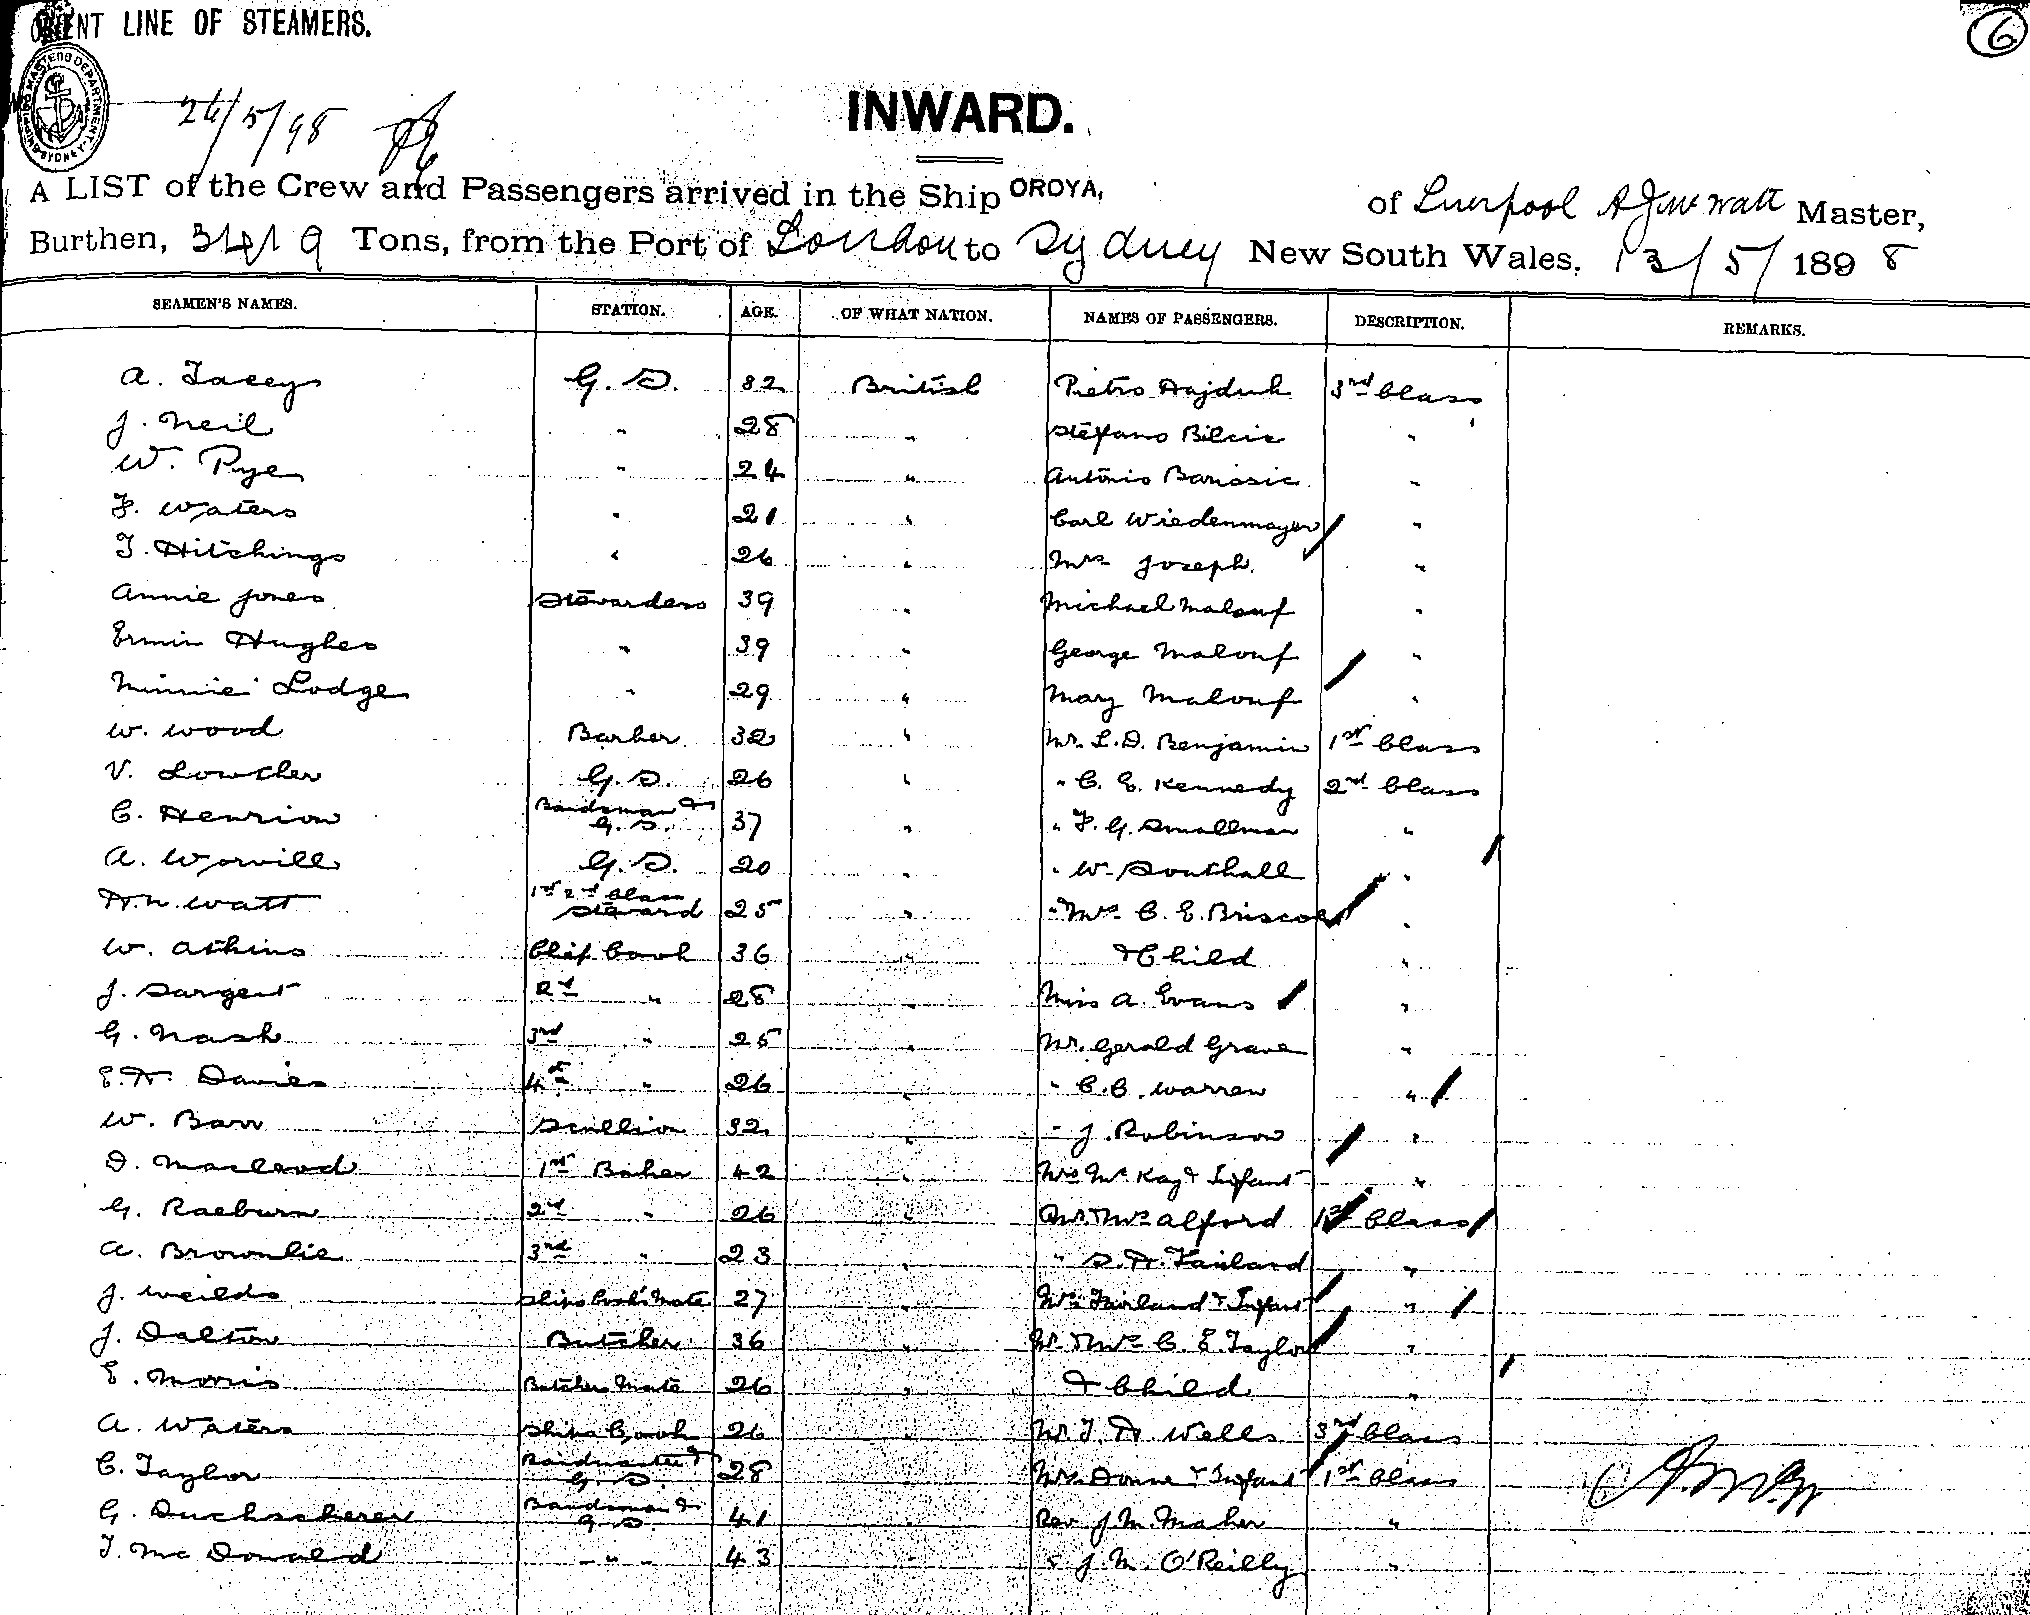 ORIENT LINE OF STEAMERS.
6
SHIPPING MASTERS DEPARTMENT SYDNEY
26/5/98
INWARD.
A LIST of the Crew and Passengers arrived in the Ship OROYA, of Liverpool Master,
Burthen, 3419 Tons, from the Port of London to Sydney New South Wales, 13/5/1898
SEAMEN'S NAMES. STATION. AGE. OF WHAT NATION. NAMES OF PASSENGERS. DESCRIPTION. REMARKS.
A. Tacey G.S. 32 British Pietro Hajduk 3rd Class
J. Neil " 28 " Stefano Bilcic "
W. Pye " 24 " Antonio Barissic "
F. Waters " 21 " Carl Wiedenmayer "
T. Hitchings " 26 " Mrs Joseph "
Annie Jones Stewardess 39 " Michael Malouf "
Ermin Hughes " 39 " George Malouf "
Minnie Lodge " 29 " Mary Malouf "
W. Wood Barber 32 " Mr. L.D. Benjamin 1st Class
V. Lowther G.S. 26 " " C. E. Kennedy 2nd Class
C. Henrion Bandsman & G.S. 37 " " F. G. Smallman "
A. Worvill G.S. 20 " " W. Southall "
H.N. Watt 1st 2nd Class Steward 25 " " Mrs C. E. Briscoe "
W. Atkins Chief Cook 36 " & Child "
J. Sargent 2nd " 28 " Miss A. Evans "
G. Nash 3rd " 25 " Mr. Gerald Grave "
E.H. Davies 4th " 26 " " C.C. Warren "
W. Barr Scullion 32 " " J. Robinson "
D. Macleod 1st Baker 42 " Mrs McKay & Infant "
G. Raeburn 2nd " 26 " Mr. & Mrs Alford 1st Class
A. Brownlie 3rd " 23 " " S. H. Fairland "
J. Weilds Ships Cooks Mate 27 " Mrs Fairland & Infant "
J. Dalton Butcher 36 " Mr & Mrs C. E. Taylor "
E. Morris Butchers Mate 26 " & Child "
A. Waters Ships Cook 26 " Mr. T. H. Wells 3rd Class
C. Taylor Bandmaster & G.S. 28 " Mrs Donne & Infant 1st Class
G. Duchscherer Bandsman & G.S. 41 " Rev J. M. Maher "
T. McDonald " 43 " " J. M. O'Reilly "